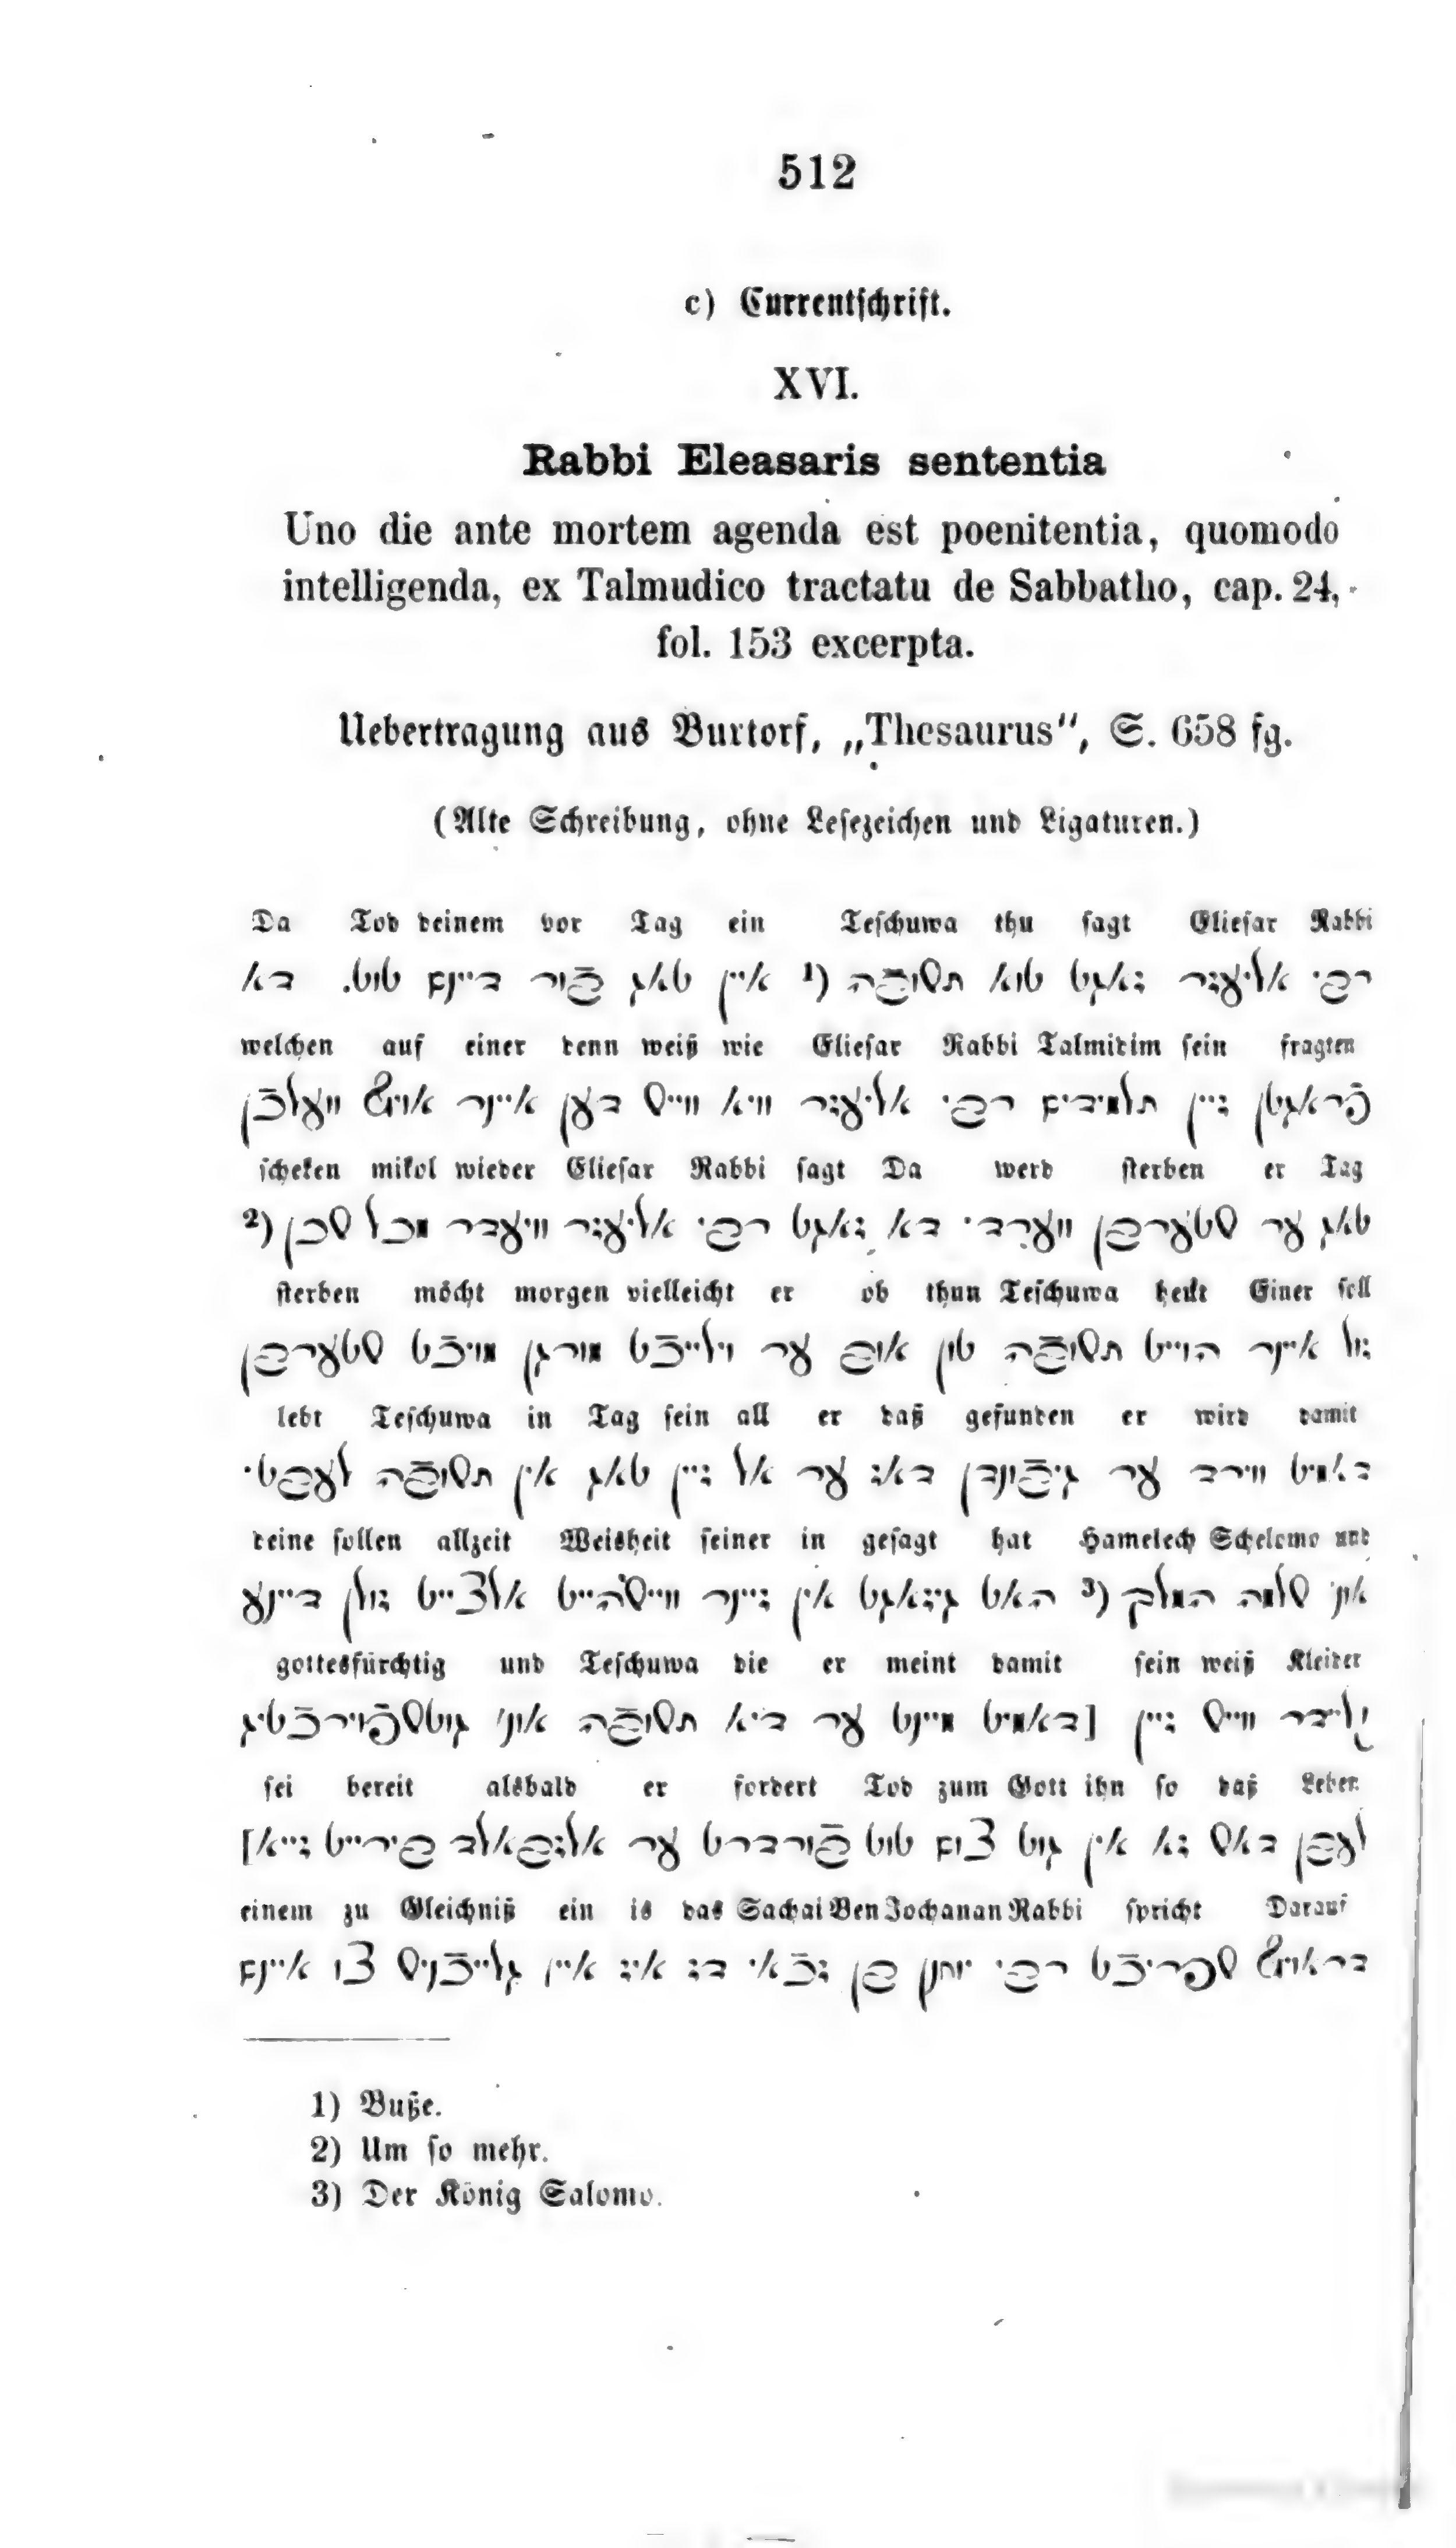 512
c) Currentschrift.
XVI.
Rabbi Eleasaris sententia
Uno die ante mortem agenda est poenitentia, quomodo
intelligenda, ex Talmudico tractatu de Sabbatho, cap. 24,
fol. 153 excerpta.
Uebertragung aus Buxtorf, „Thesaurus“, S. 658 fg.
(Alte Schreibung, ohne Lesezeichen und Ligaturen.)
Da Tod deinem vor Tag ein Teschuwa thu sagt Eliesar Rabbi
רבי אליעזר זאגט טוא תשובֿה (1 איין טאג בֿור דיינם טוט. דא
welchen auf einer denn weiß wie Eliesar Rabbi Talmidim sein fragten
פֿראגטן זיין תלמידים רבי אליעזר וויא ווייס דען איינר אויף וועלכֿן
scheken mikol wieder Eliesar Rabbi sagt Da werd sterben er Tag
טאג ער שטערבן ווערד׳ דא זאגט רבי אליעזר וויעדר מכל שכן (2
sterben möcht morgen vielleicht er ob thun Teschuwa heut Einer soll
זול איינר הוייט תשובֿה טון אוב ער וילייכֿט מורגן מויכֿט שטערבן
lebt Teschuwa in Tag sein all er daß gefunden er wird damit
דאמיט ווירד ער גיבֿונדן דאז ער אל זיין טאג אין תשובֿה לעבט׳
deine sollen allzeit Weisheit seiner in gesagt hat Hamelech Schelomo und
אונ׳ שלמה המלך (3 האט גיזאגט אין זיינר ווייסהייט אלצייט זולן דיינע
gottesfürchtig und Teschuwa die er meint damit sein weiß Kleider
קליידר ווייס זיין [דאמיט מיינט ער דיא תשובֿה אונ׳ גוטספֿוירכֿטיג
sei bereit alsbald er fordert Tod zum Gott ihn so daß Leben
לעבן דאס זא אין גוט צום טוט בֿורדרט ער אלזבאלד בירייט זייא]
einem zu Gleichniß ein is das Sachai Ben Jochanan Rabbi spricht Darauf
דראויף שפריכֿט רבי יוחנן בן זכֿאי דז איז איין גלייכֿניס צו איינם
1) Buße.
2) Um so mehr.
3) Der König Salomo.